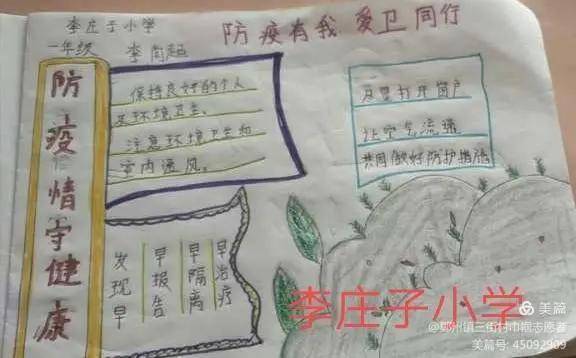 李庄子小学
一年级 李尚超
防疫有我 爱卫同行
防疫情守健康
保持良好的个人
及环境卫生、
注意环境卫生和
室内通风。
及要打开窗户
让空气流通
共同做好防护措施
早发现
早报告
早隔离
早治疗
李庄子小学
美篇
三街村巾帼志愿者
美篇号: 45092909